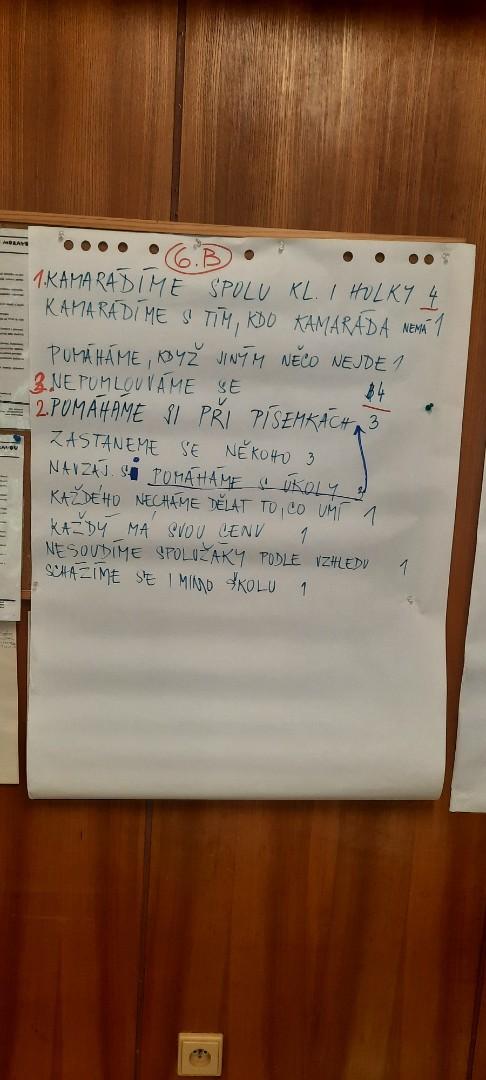 6.B
1. KAMARÁDÍME SPOLU KL. I HOLKY 4
KAMARÁDÍME S TÍM, KDO KAMARÁDA NEMÁ 1
POMÁHÁME, KDYŽ JINÝM NĚCO NEJDE 1
3. NEPOMLOUVÁME SE 4
2. POMÁHÁME SI PŘI PÍSEMKÁCH 3
ZASTANEME SE NĚKOHO 3
NAVZÁJ. SI POMÁHÁME S ÚKOLY
KAŽDÉHO NECHÁME DĚLAT TO, CO UMÍ 1
KAŽDÝ MÁ SVOU CENU 1
NESOUDÍME SPOLUŽÁKY PODLE VZHLEDU 1
SCHÁZÍME SE I MIMO ŠKOLU 1